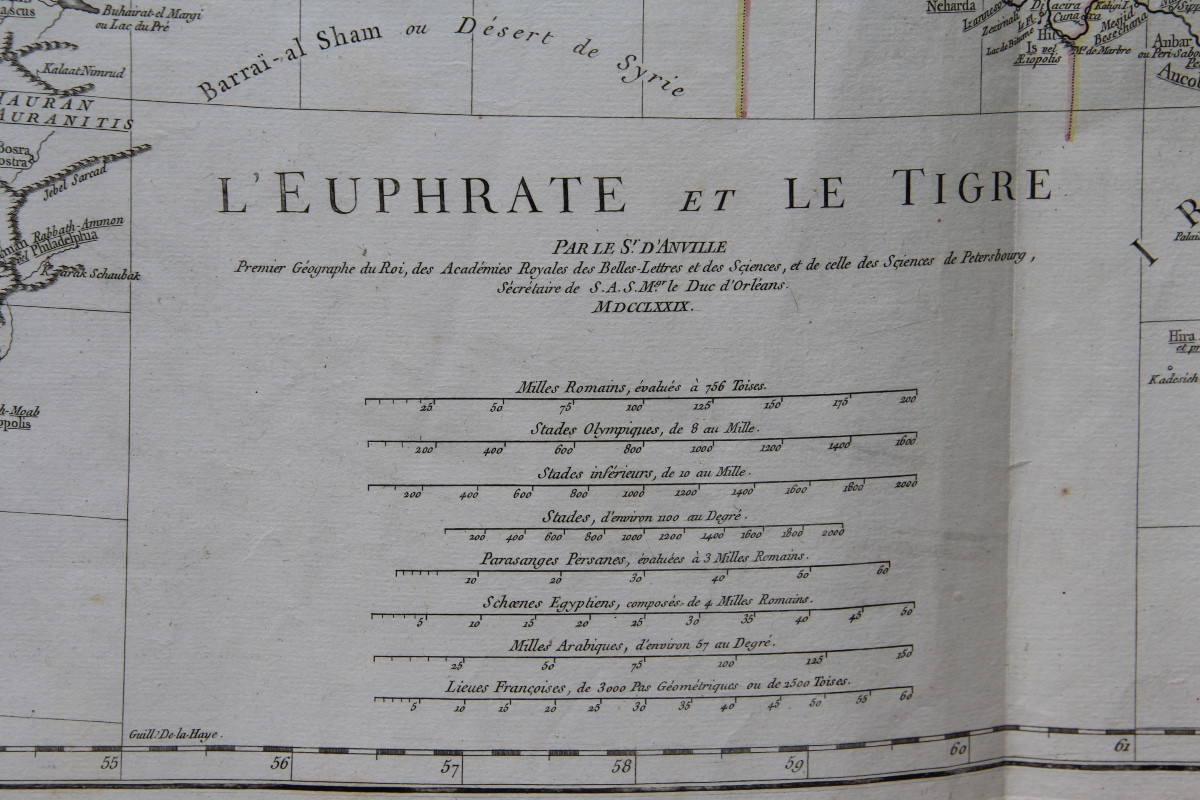 Buhairat-el Margi
ou Lac du Pré
Kalaat Nimrud
Barraï-al Sham ou Désert de Syrie
Neharda
Hit
Is vel
Æiopolis
Mesjid
Besechana
Me. de Marbre
Anbar
HAURAN
AURANITIS
Jebel Sarcad
Rabbath-Ammon
Philadelphia
Karak Schaubak
L'EUPHRATE ET LE TIGRE
PAR LE Sr. D'ANVILLE
Premier Géographe du Roi, des Académies Royales des Belles-Lettres et des Sçiences, et de celle des Sçiences de Petersbourg,
Sécrétaire de S.A.S. Mgr. le Duc d'Orléans.
MDCCLXXIX.
Hira
Kadesieh
Milles Romains, évalués à 756 Toises.
25 50 75 100 125 150 175 200
Stades Olympiques, de 8 au Mille.
200 400 600 800 1000 1200 1400 1600
Stades inférieurs, de 10 au Mille.
200 400 600 800 1000 1200 1400 1600 1800 2000
Stades, d'environ 1100 au Degré.
200 400 600 800 1000 1200 1400 1600 1800 2000
Parasanges Persanes, évaluées à 3 Milles Romains.
10 20 30 40 50 60
Schœnes Egyptiens, composés de 4 Milles Romains.
5 10 15 20 25 30 35 40 45 50
Milles Arabiques, d'environ 57 au Degré.
25 50 75 100 125 150
Lieues Françoises, de 3000 Pas Géométriques ou de 2500 Toises.
5 10 15 20 25 30 35 40 45 50 55 60
Guill. De-la-Haye.
55 56 57 58 59 60 61